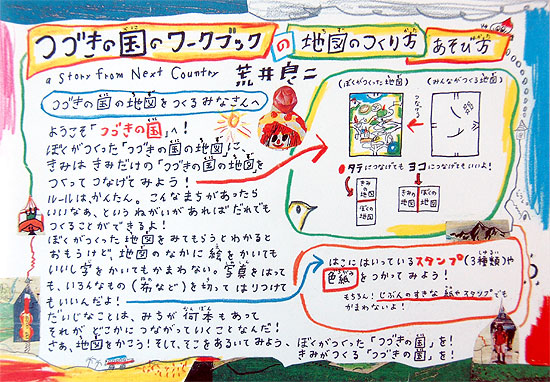 つづきの国のワークブックの地図のつくり方 あそび方
a story from Next Country 荒井良二
つづきの国の地図をつくるみなさんへ
ようこそ「つづきの国」へ!
ぼくがつくった「つづきの国の地図」に、
きみはきみだけの「つづきの国の地図を
つくってつなげてみよう!
ルールはかんたん。こんなまちがあったら
いいなあ、というねがいがあればだれでも
つくることができるよ!
ぼくがつくった地図をみてもらうとわかると
おもうけど、地図のなかに絵をかいても
いいし字をかいてもかまわない。写真をはって
も、いろんなもの(布など)を切ってはりつけて
もいいんだよ!
だいじなことは、みちが何本もあって
それがどこかにつながっていくことなんだ!
さあ、地図をかこう!そして、そこをあるいてみよう、
(ぼくがつくった地図)
(みんながつくる地図)
つなげる
タテにつなげてもヨコにつなげてもいいよ!
きみの地図
ぼくの地図
きみの地図
ぼくの地図
はこにはいっているスタンプ(3種類)や
色紙をつかってみよう!
もちろん!じぶんのすきな紙やスタンプでも
かまわないよ!
ぼくがつくった「つづきの国」を!
きみがつくる「つづきの国」を!